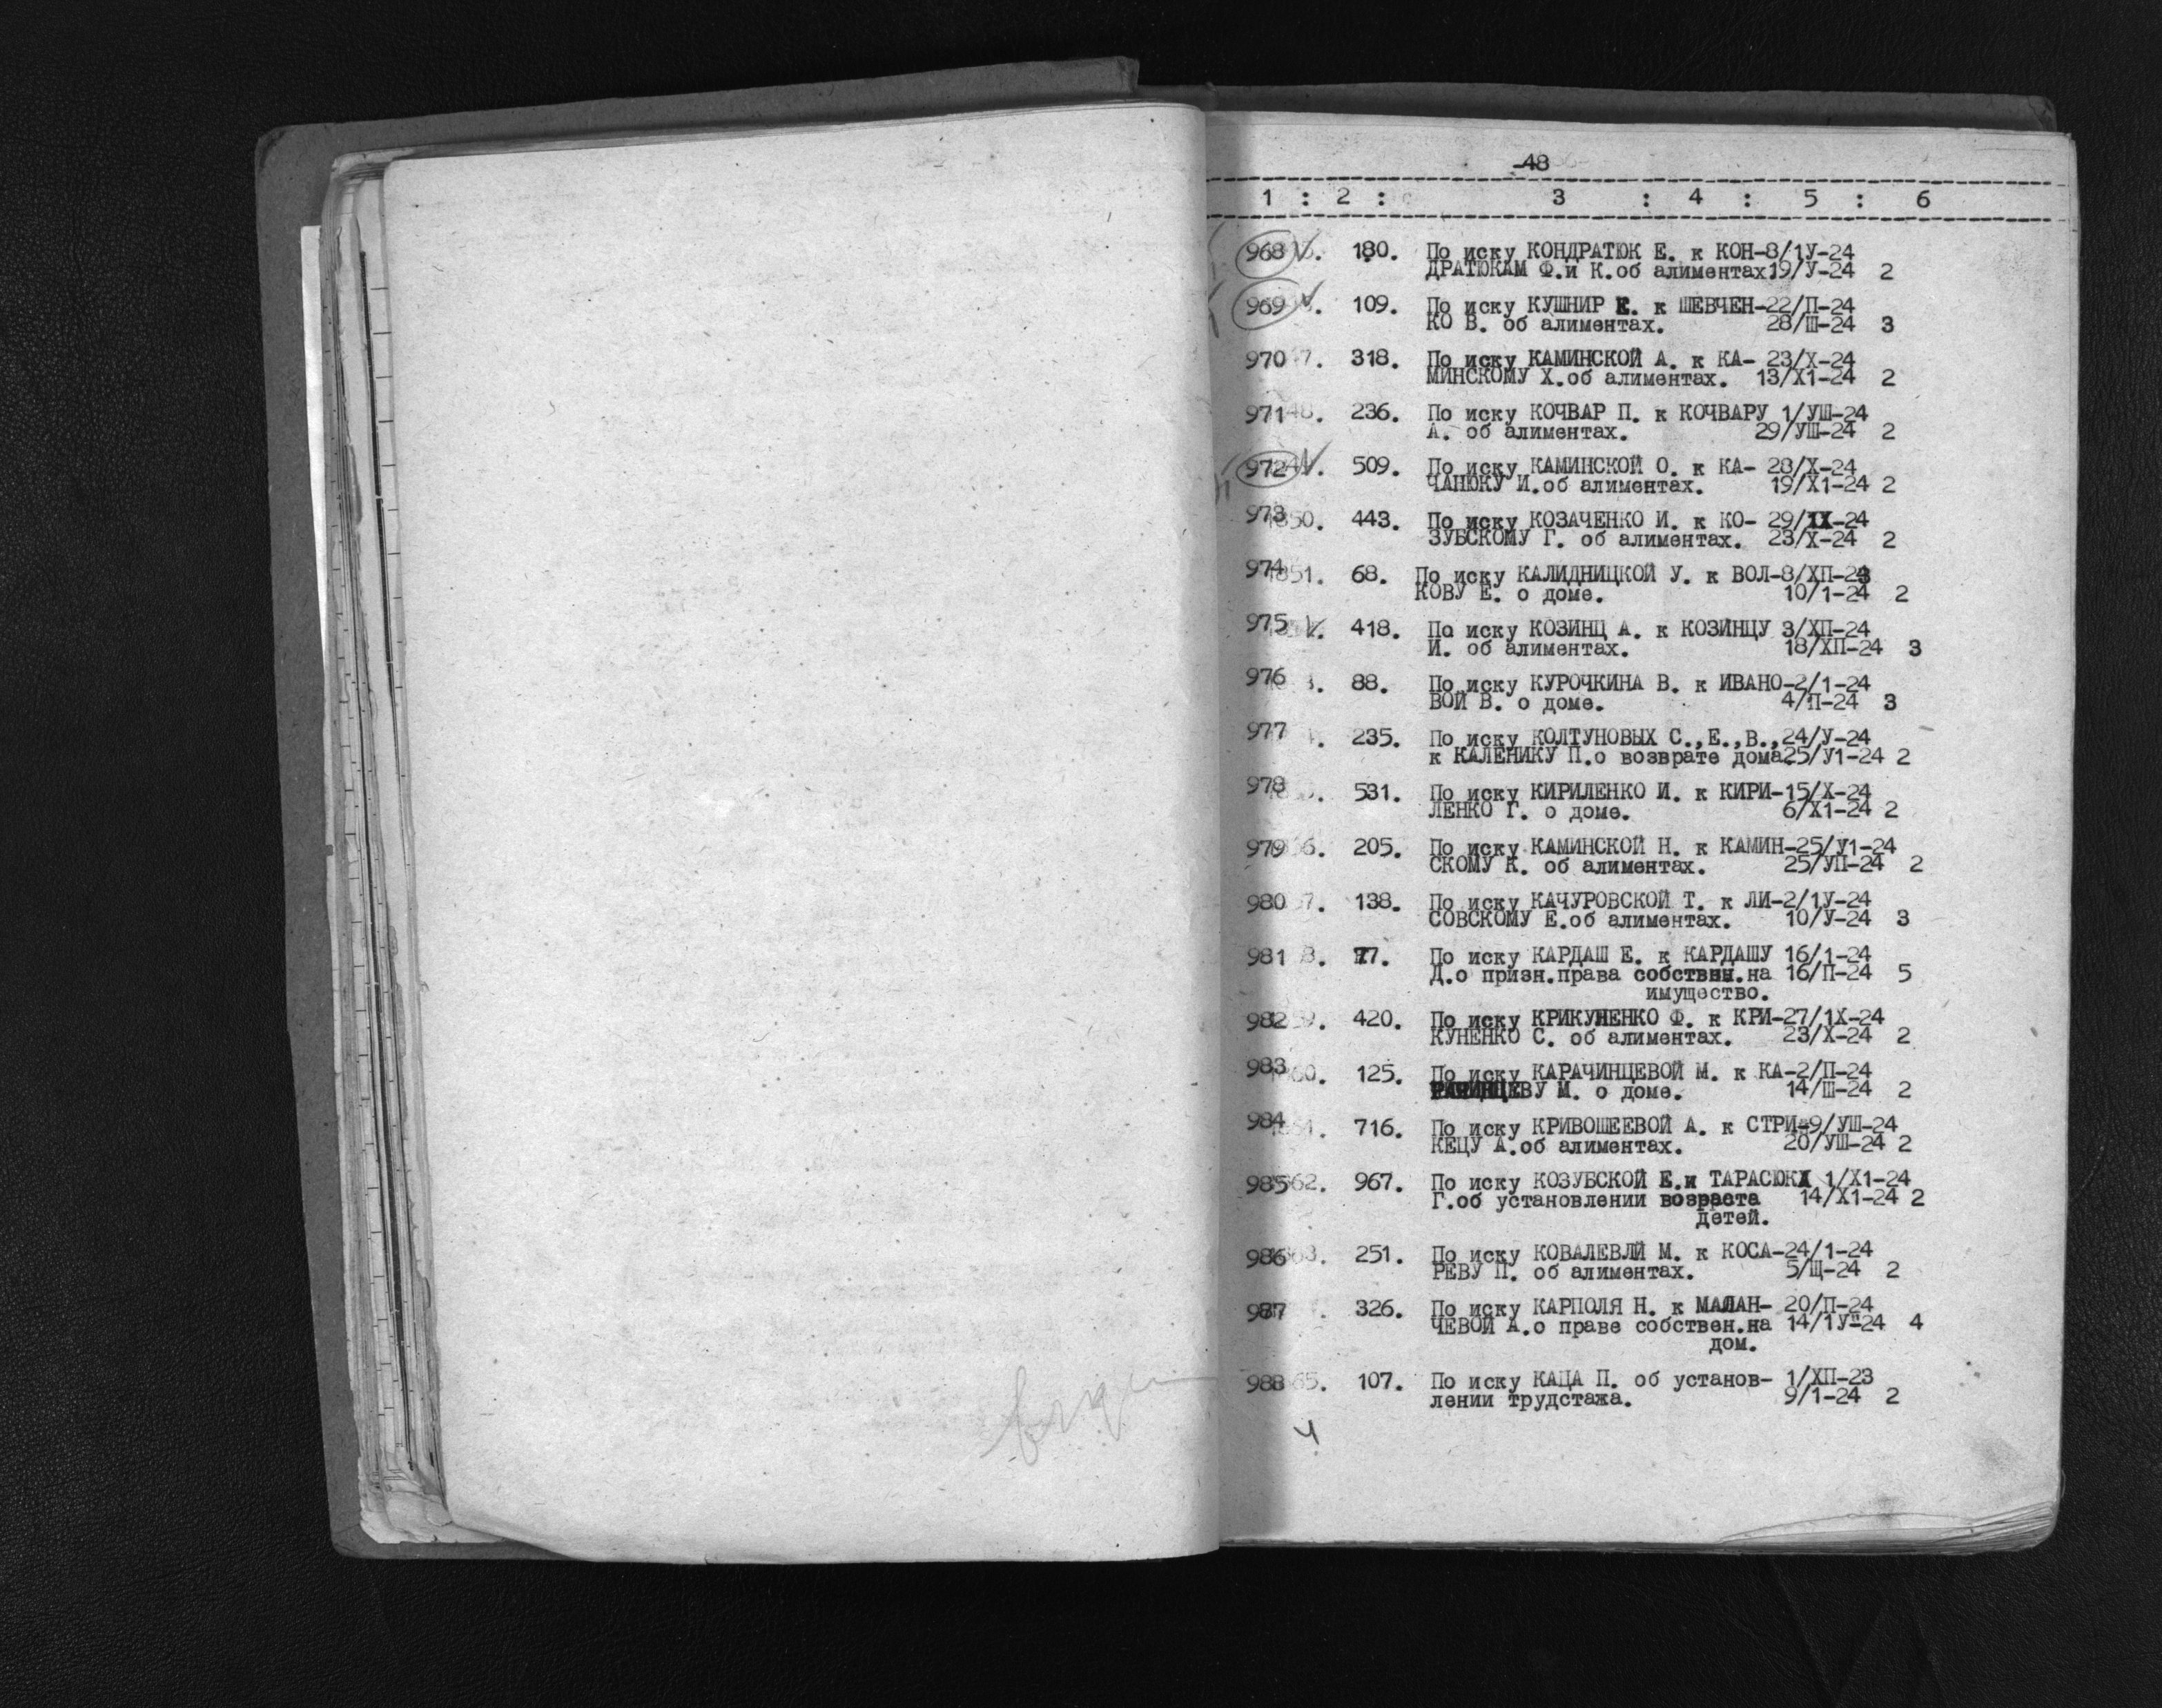 -48
1 : 2 : 3 : 4 : 5 : 6
968 180. По иску КОНДРАТЮК Е. к КОН-8/1У-24
ДРАТЮКАМ Ф.и К.об алиментах19/У-24 2
969 109. По иску КУШНИР Е. к ШЕВЧЕН-22/П-24
КО В. об алиментах. 28/Ш-24 3
970 318. По иску КАМИНСКОЙ А. к КА- 23/Х-24
МИНСКОМУ Х.об алиментах. 13/Х1-24 2
971 236. По иску КОЧВАР П. к КОЧВАРУ 1/УШ-24
А. об алиментах. 29/УШ-24 2
972 509. По иску КАМИНСКОЙ О. к КА- 28/Х-24
ЧАНЮКУ И.об алиментах. 19/Х1-24 2
973 443. По иску КОЗАЧЕНКО И. к КО- 29/IX-24
ЗУБСКОМУ Г. об алиментах. 23/Х-24 2
974 68. По иску КАЛИДНИЦКОЙ У. к ВОЛ-8/ХП-23
КОВУ Е. о доме. 10/1-24 2
975 418. По иску КОЗИНЦ А. к КОЗИНЦУ 3/ХП-24
И. об алиментах. 18/ХП-24 3
976 88. По иску КУРОЧКИНА В. к ИВАНО-2/1-24
ВОЙ В. о доме. 4/П-24 3
977 235. По иску КОЛТУНОВЫХ С.,Е.,В.,24/У-24
к КАЛЕНИКУ П.о возврате дома25/У1-24 2
978 531. По иску КИРИЛЕНКО И. к КИРИ-15/Х-24
ЛЕНКО Г. о доме. 6/Х1-24 2
979 205. По иску КАМИНСКОЙ Н. к КАМИН-25/У1-24
СКОМУ К. об алиментах. 25/УП-24 2
980 138. По иску КАЧУРОВСКОЙ Т. к ЛИ-2/1У-24
СОВСКОМУ Е.об алиментах. 10/У-24 3
981 77. По иску КАРДАШ Е. к КАРДАШУ 16/1-24
Д.о призн.права собствен.на 16/П-24 5
имущество.
982 420. По иску КРИКУНЕНКО Ф. к КРИ-27/1Х-24
КУНЕНКО С. об алиментах. 23/Х-24 2
983 125. По иску КАРАЧИНЦЕВОЙ М. к КА-2/П-24
РАЧИНЦЕВУ М. о доме. 14/Ш-24 2
984 716. По иску КРИВОШЕЕВОЙ А. к СТРИ-9/УШ-24
КЕЦУ А.об алиментах. 20/УШ-24 2
985 967. По иску КОЗУБСКОЙ Е.и ТАРАСЮКА 1/Х1-24
Г.об установлении возраста 14/Х1-24 2
детей.
986 251. По иску КОВАЛЕВЛЙ М. к КОСА-24/1-24
РЕВУ П. об алиментах. 5/Щ-24 2
987 326. По иску КАРПОЛЯ Н. к МАЛАН- 20/П-24
ЧЕВОЙ А.о праве собствен.на 14/1У-24 4
дом.
988 107. По иску КАЦА П. об установ- 1/ХП-23
лении трудстажа. 9/1-24 2